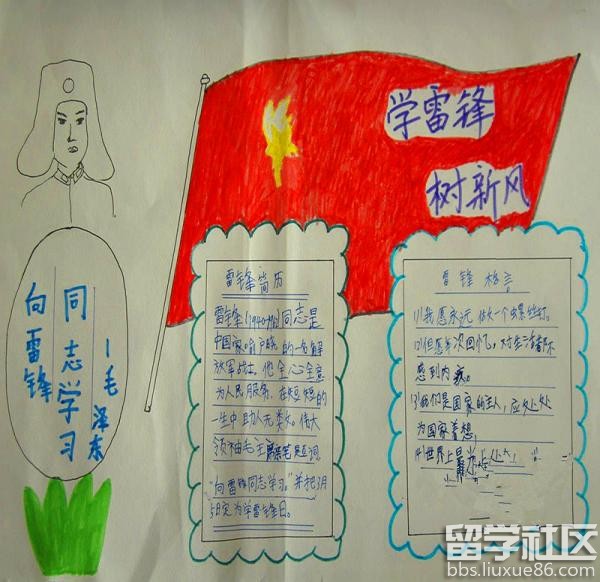 学雷锋
树新风
向雷锋
同志学习
—毛泽东
雷锋简历
雷锋(1940-1962)同志是
中国家喻户晓的一名解
放军战士。他全心全意
为人民服务,在短短的
一生中助人无数。伟大
领袖毛主席亲笔题词
“向雷锋同志学习。”并把3月
5日定为学雷锋日。
雷锋格言
(1)我愿永远做一个螺丝钉。
(2)但愿每次回忆,对生活都不
感到内疚。
(3)我们是国家的主人,应处处
为国家着想,
(4)世界上最
留学社区
bbs.liuxue86.com